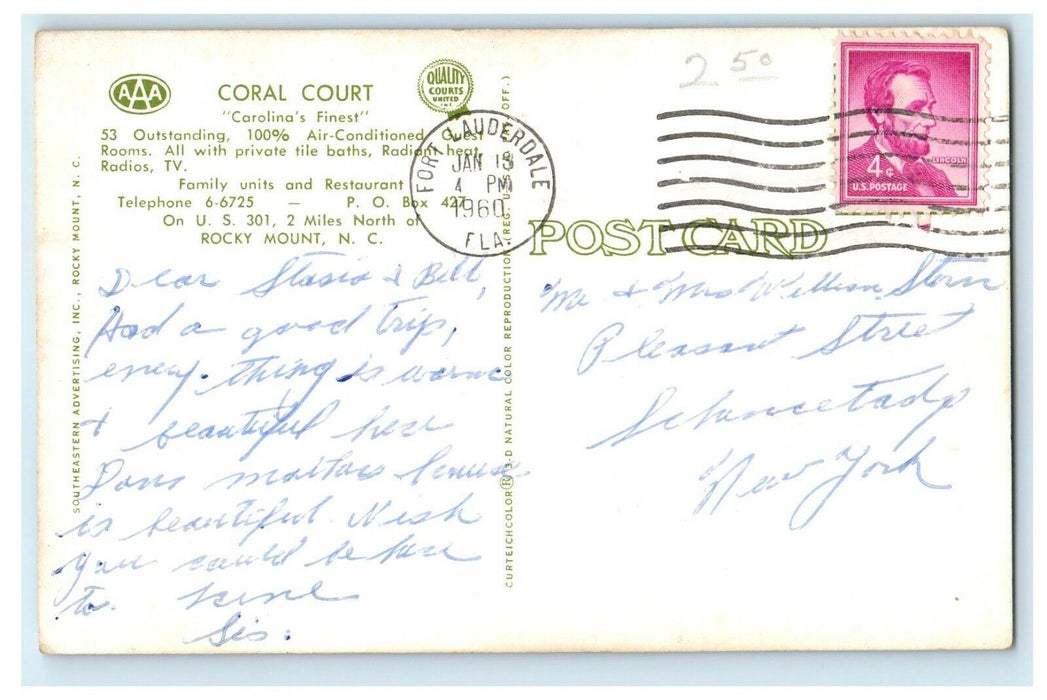 AAA
CORAL COURT
QUALITY COURTS UNITED INC.
"Carolina's Finest"
53 Outstanding, 100% Air-Conditioned Guest
Rooms. All with private tile baths, Radiant heat,
Radios, TV.
Family units and Restaurant
Telephone 6-6725 — P. O. Box 427
On U. S. 301, 2 Miles North of
ROCKY MOUNT, N. C.
SOUTHEASTERN ADVERTISING, INC., ROCKY MOUNT, N. C.
FORT LAUDERDALE
JAN 18
4 PM
1960
FLA.
2 50
LINCOLN
4¢
U.S. POSTAGE
POST CARD
CURTEICHCOLOR® 3-D NATURAL COLOR REPRODUCTION (REG. U.S. OFF.)
Dear Stasia & Bill,
Had a good trip,
every thing is warm
& beautiful here
mothers house
is beautiful. Wish
you could be here
to.
Sis.
Mr & Mrs William Stern
Pleasant Street
Schenectady
New York